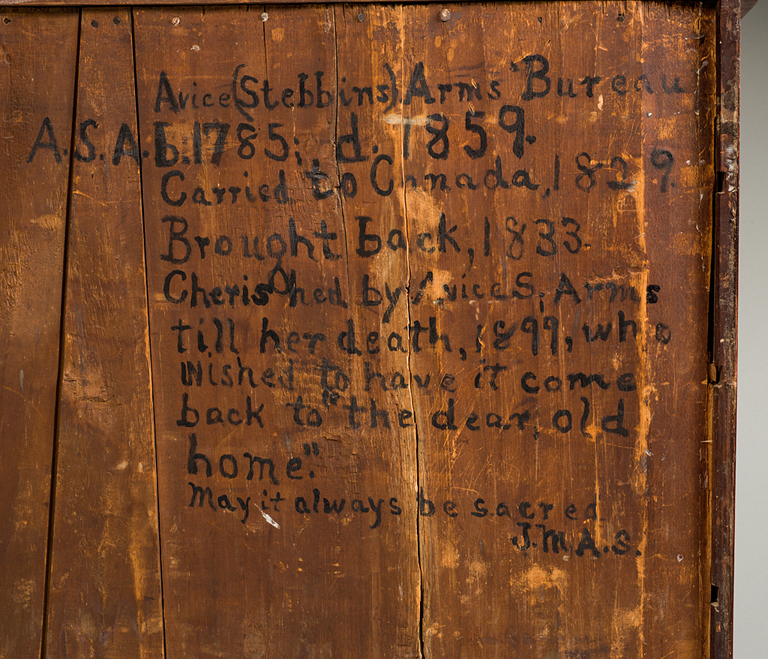 Avice (Stebbins) Arms' Bureau
A.S.A. b. 1785; d. 1859.
Carried to Canada, 1829.
Brought back, 1833.
Cherished by Avice S. Arms
till her death, 1899, who
wished to have it come
back to "the dear, old
home".
May it always be sacred
J.M.A.S.